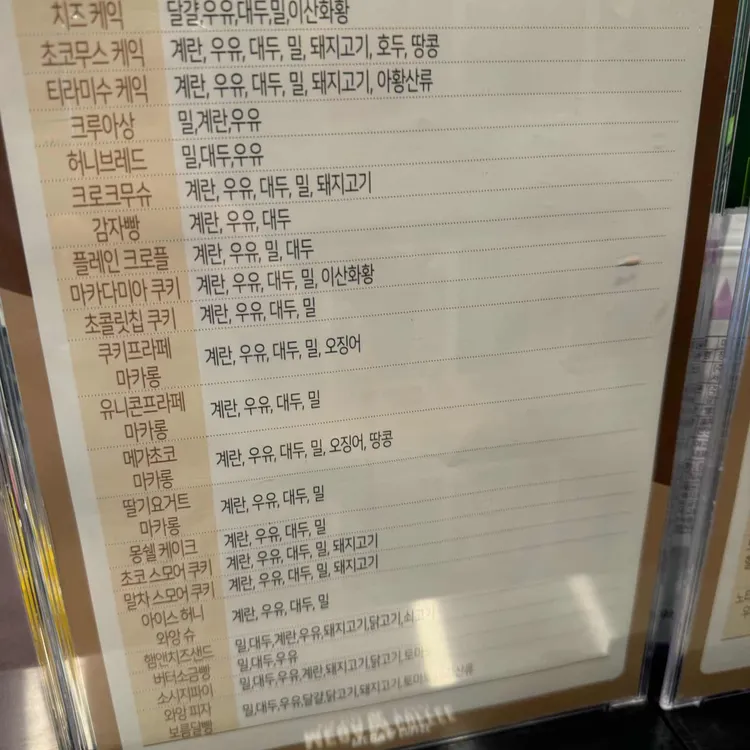 치즈 케익 달걀,우유,대두,밀,이산화황
초코무스 케익 계란, 우유, 대두, 밀, 돼지고기, 호두, 땅콩
티라미수 케익 계란, 우유, 대두, 밀, 돼지고기, 아황산류
크루아상 밀,계란,우유
허니브레드 밀,대두,우유
크로크무슈 계란, 우유, 대두, 밀, 돼지고기
감자빵 계란, 우유, 대두
플레인 크로플 계란, 우유, 밀, 대두
마카다미아 쿠키 계란, 우유, 대두, 밀, 이산화황
초콜릿칩 쿠키 계란, 우유, 대두, 밀
쿠키프라페
마카롱 계란, 우유, 대두, 밀, 오징어
유니콘프라페
마카롱 계란, 우유, 대두, 밀
메가초코
마카롱 계란, 우유, 대두, 밀, 오징어, 땅콩
딸기요거트
마카롱 계란, 우유, 대두, 밀
몽쉘 케이크 계란, 우유, 대두, 밀
초코 스모어 쿠키 계란, 우유, 대두, 밀, 돼지고기
말차 스모어 쿠키 계란, 우유, 대두, 밀, 돼지고기
아이스 허니
와앙 슈 계란, 우유, 대두, 밀
햄앤치즈샌드 밀,대두,계란,우유,돼지고기,닭고기,쇠고기
버터소금빵 밀,대두,우유
소시지파이 밀,대두,우유,계란,돼지고기,닭고기
와앙 피자 밀,대두,우유,달걀,닭고기,돼지고기
보름달빵